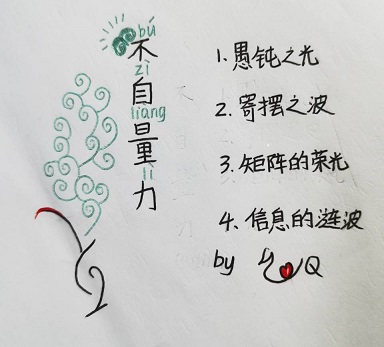 bú
不
zì
自
liàng
量
lì
力
1. 愚钝之光
2. 寄摆之波
3. 矩阵的荣光
4. 信息的涟波
by Q